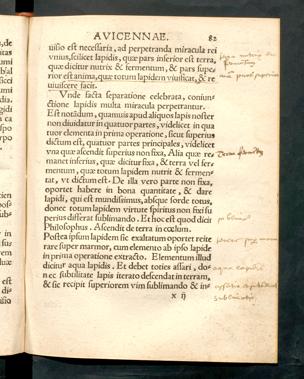 AVICENNAE. 82
uisio est necessaria, ad perpetranda miracula rei
vnius, scilicet lapidis, quæ pars inferior est terra,
quæ dicitur nutrix & fermentum, & pars supe
rior est anima, quæ totum lapidem viuificat, & re
uiuiscere facit.
Vnde facta separatione celebrata, coniun-
ctione lapidis multa miracula perpetrantur.
Est notādum, quamuis apud aliquos lapis noster
non diuidatur in quatuor partes, videlicet in qua
tuor elementa in prima operatione, sicut superius
dictum est, quatuor partes principales, videlicet
vna quæ ascendit superius non fixa, Alia quæ re-
manet inferius, quæ dicitur fixa, & terra vel fer
mentum, quæ totum lapidem nutrit & fermen-
tat, vt dictum est. De illa vero parte non fixa,
oportet habere in bona quantitate, & dare
lapidi, qui est mundissimus, absque sorde totus,
donec totum lapidem virtute spiritus non fixi su
perius differat sublimando. Et hoc est quod dicit
Philosophus. Ascendit de terra in cœlum.
Postea ipsum lapidem sic exaltatum oportet reite
rare super marmor, cum elemento ab ipso lapide
in prima operatione extracto. Elementum illud
dicitur aqua lapidis. Et debet toties assari, do-
nec subtilitate lapis iterato descendat in terram,
& sic recipit superiorem vim sublimando & in-
x ij